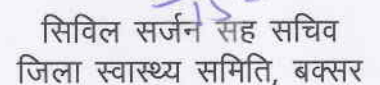 सिविल सर्जन सह सचिव
जिला स्वास्थ्य समिति, बक्सर